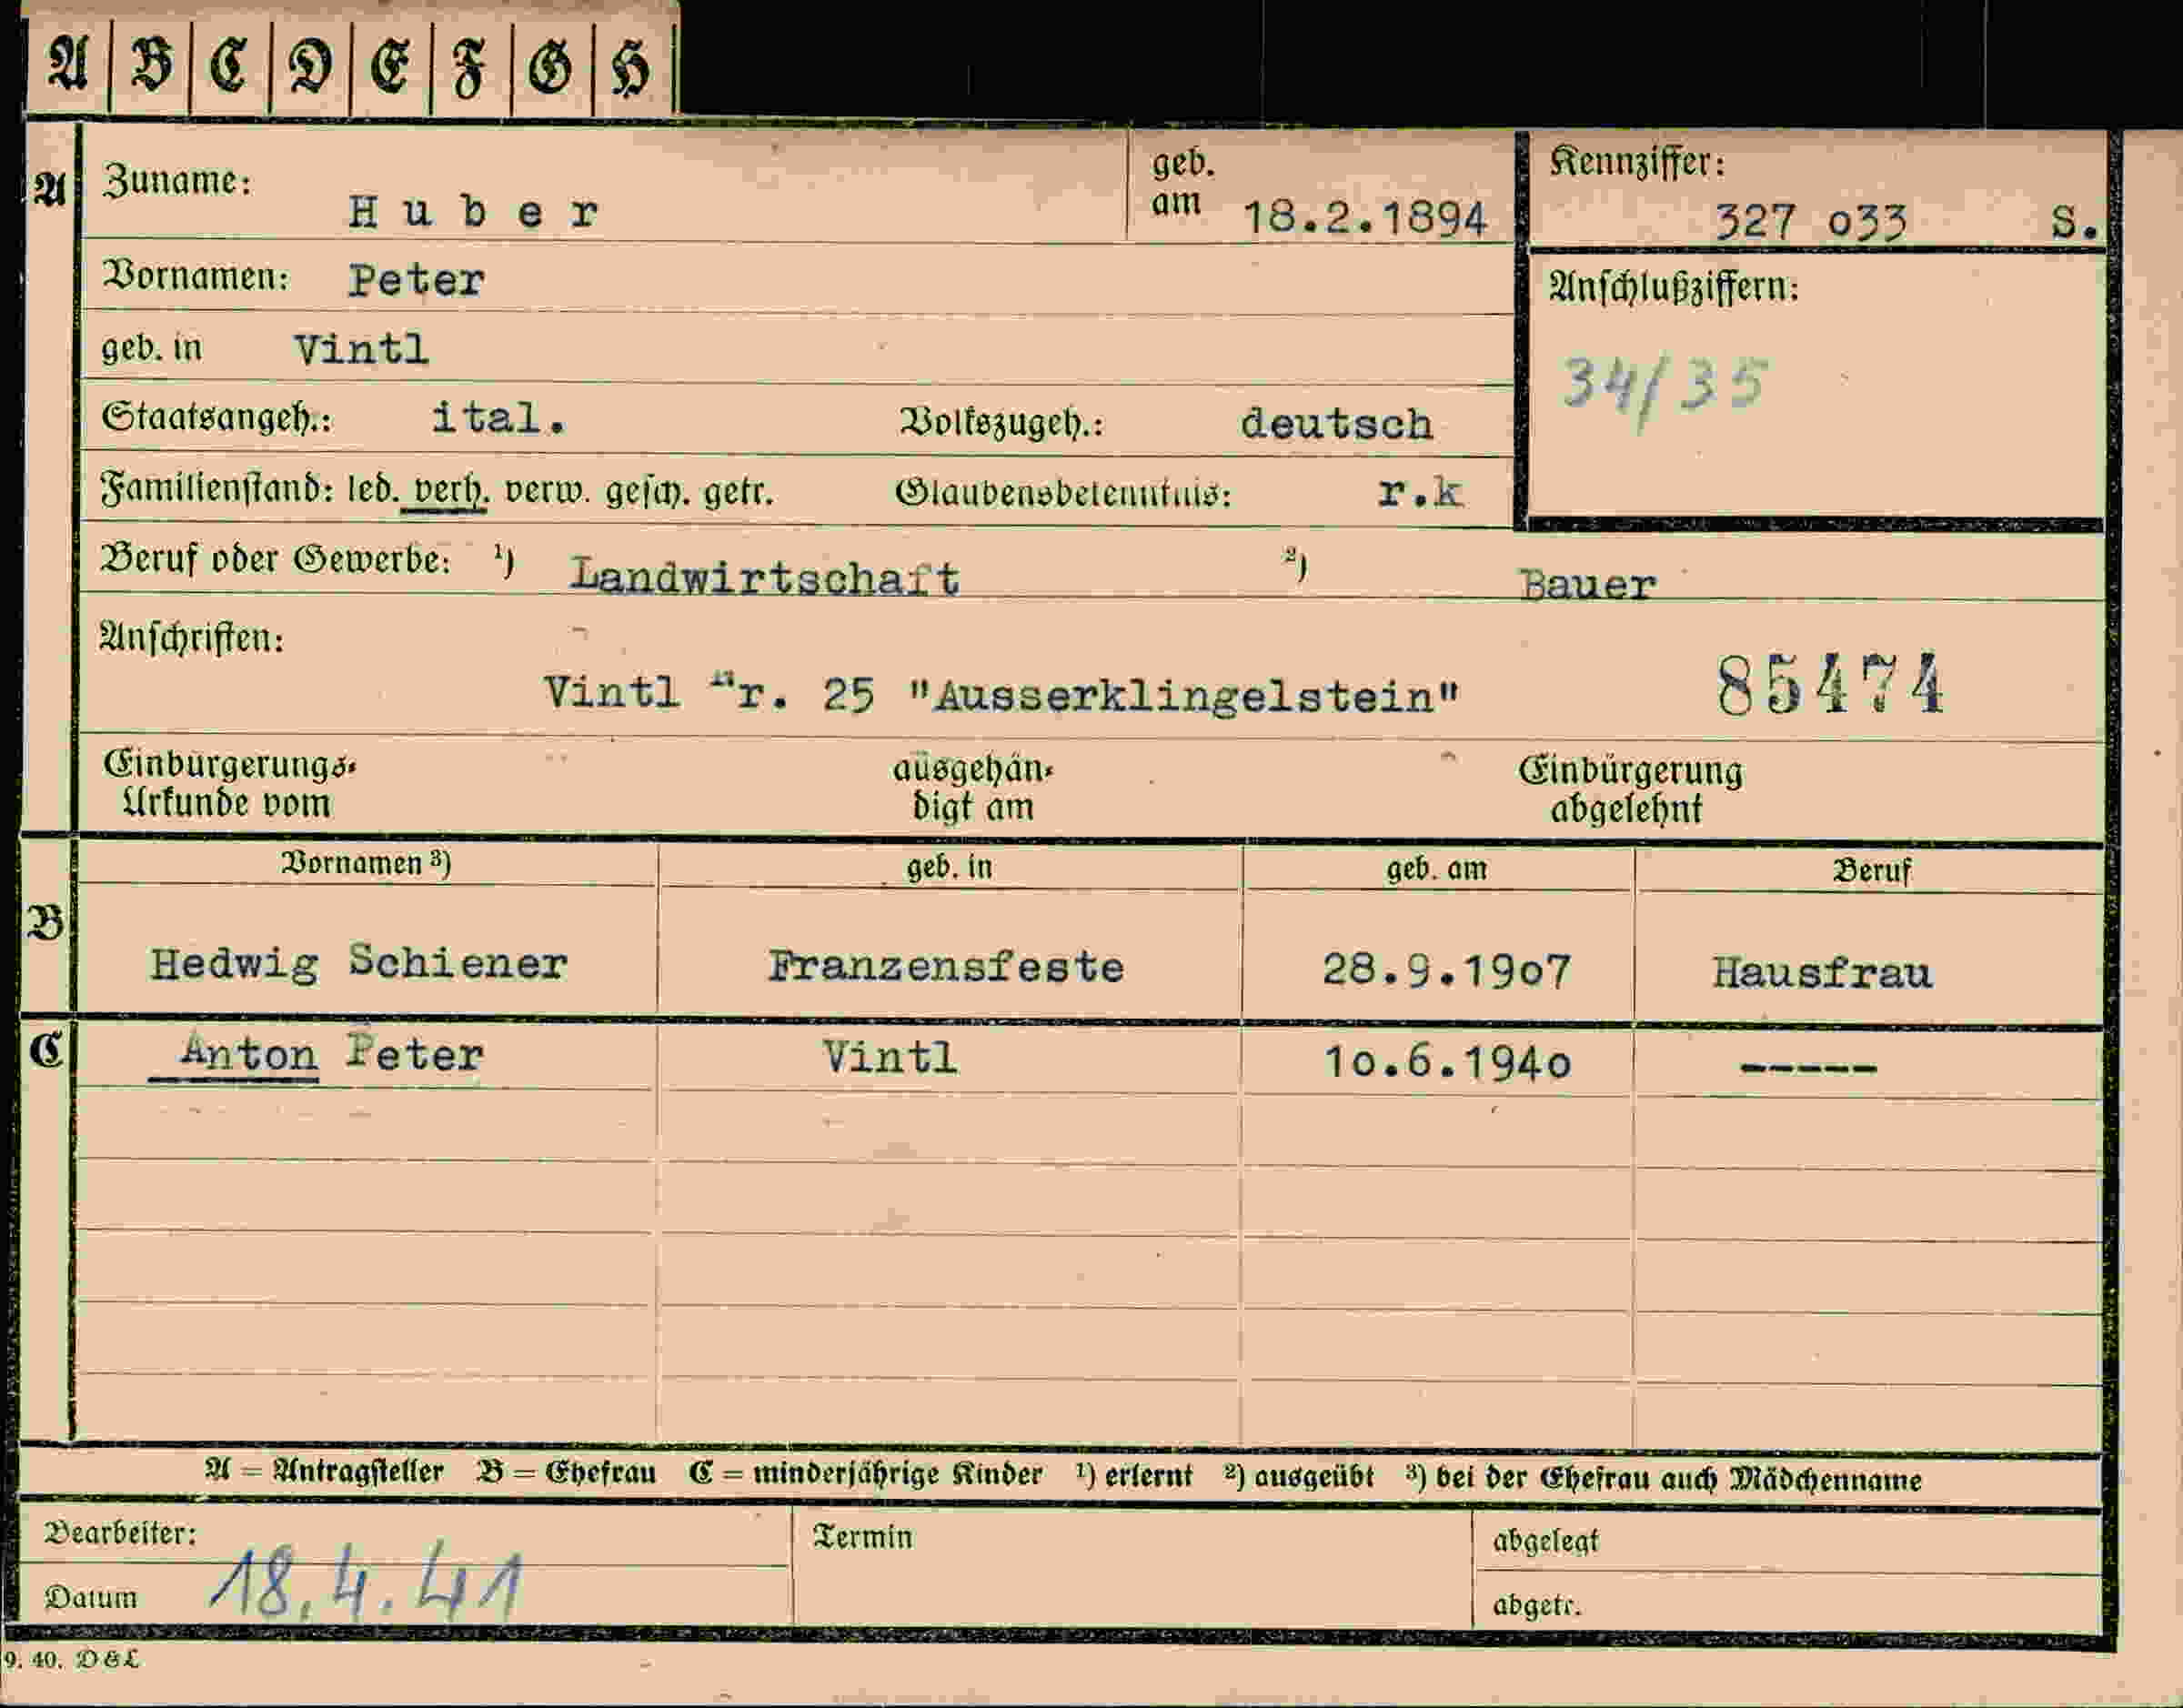 A B C D E F G H
A Zuname: Huber geb. am 18.2.1894 Kennziffer: 327 o33 S.
Vornamen: Peter Anschlußziffern:
geb. in Vintl 34/35
Staatsangeh.: ital. Volkszugeh.: deutsch
Familienstand: led. verh. verw. gesch. getr. Glaubensbekenntnis: r.k
Beruf oder Gewerbe: ¹) Landwirtschaft ²) Bauer
Anschriften:
Vintl Nr. 25 "Ausserklingelstein" 85474
Einbürgerungs-Urkunde vom ausgehändigt am Einbürgerung abgelehnt
Vornamen ³) geb. in geb. am Beruf
B Hedwig Schiener Franzensfeste 28.9.19o7 Hausfrau
C Anton Peter Vintl 1o.6.194o -----
A = Antragsteller B = Ehefrau C = minderjährige Kinder ¹) erlernt ²) ausgeübt ³) bei der Ehefrau auch Mädchenname
Bearbeiter: Termin abgelegt
Datum 18.4.41 abgetr.
9. 40. D&L